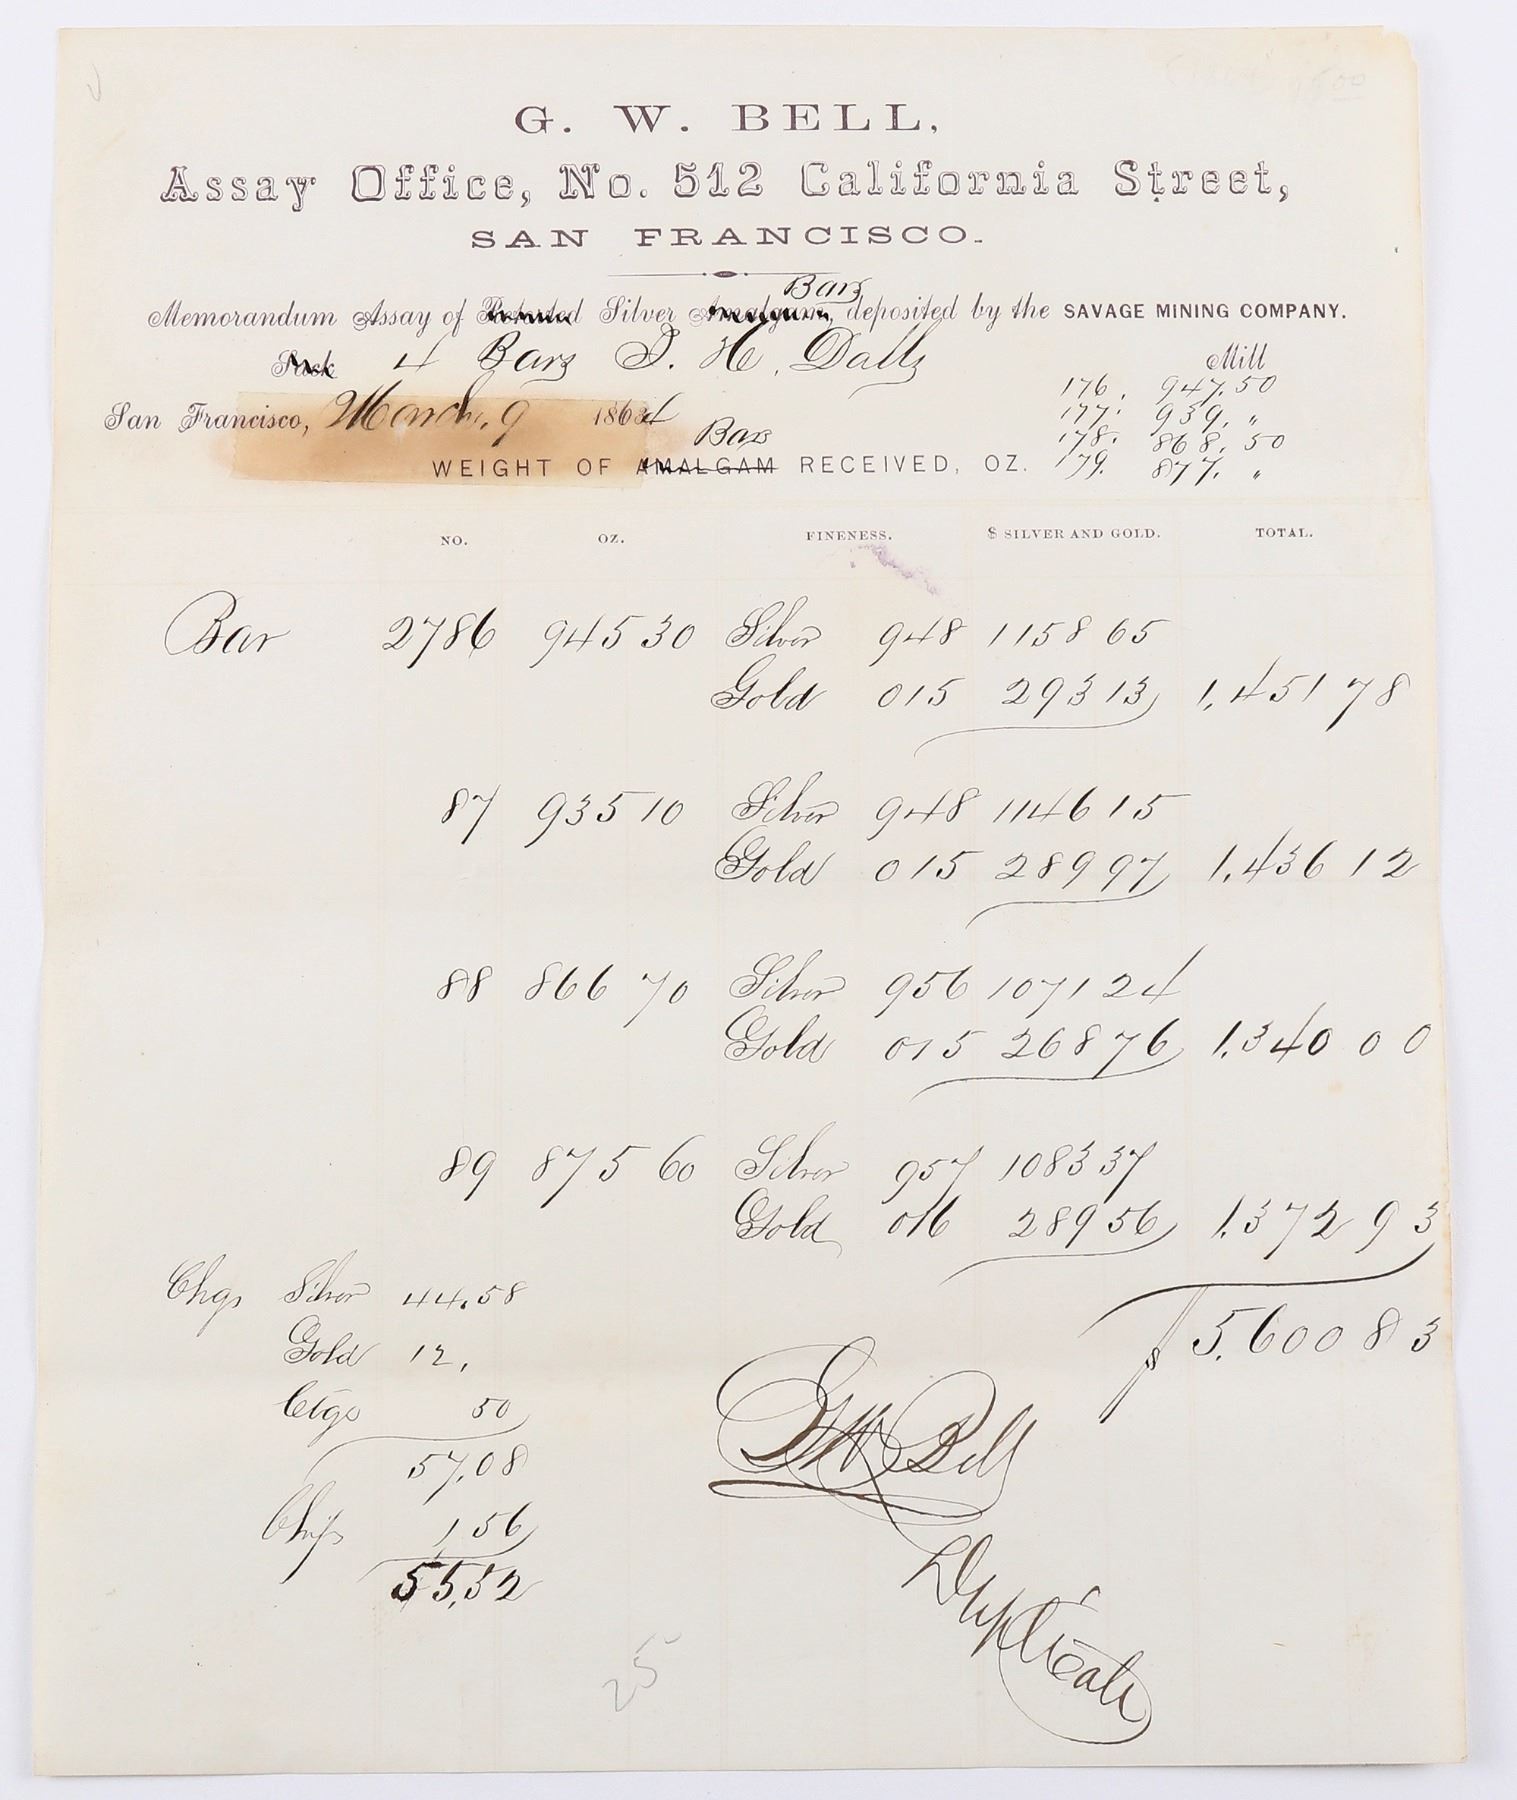 G. W. BELL,
Assay Office, No. 512 California Street,
SAN FRANCISCO.
Bars
Memorandum Assay of Retorted Silver Amalgam, deposited by the SAVAGE MINING COMPANY.
Sack 4 Bars I. H. Dalls Mill
176. 947.50
San Francisco, March, 9 1864 177. 939. "
Bars 178. 868. 50
WEIGHT OF AMALGAM RECEIVED, OZ. 179. 877. "
NO. OZ. FINENESS. $ SILVER AND GOLD. TOTAL.
Bar 2786 945 30 Silver 948 1158 65
Gold 015 293 13 1,451 78
87 935 10 Silver 948 1146 15
Gold 015 289 97 1,436 12
88 866 70 Silver 956 1071 24
Gold 015 268 76 1,340 00
89 875 60 Silver 957 1083 37
Gold 016 289 56 1,372 93
Chgs Silver 44.58
$ 5,600 83
Gold 12,
Ctgs 50
GW Bell
57,08
Chips 1,56
Duplicate
55,52
25